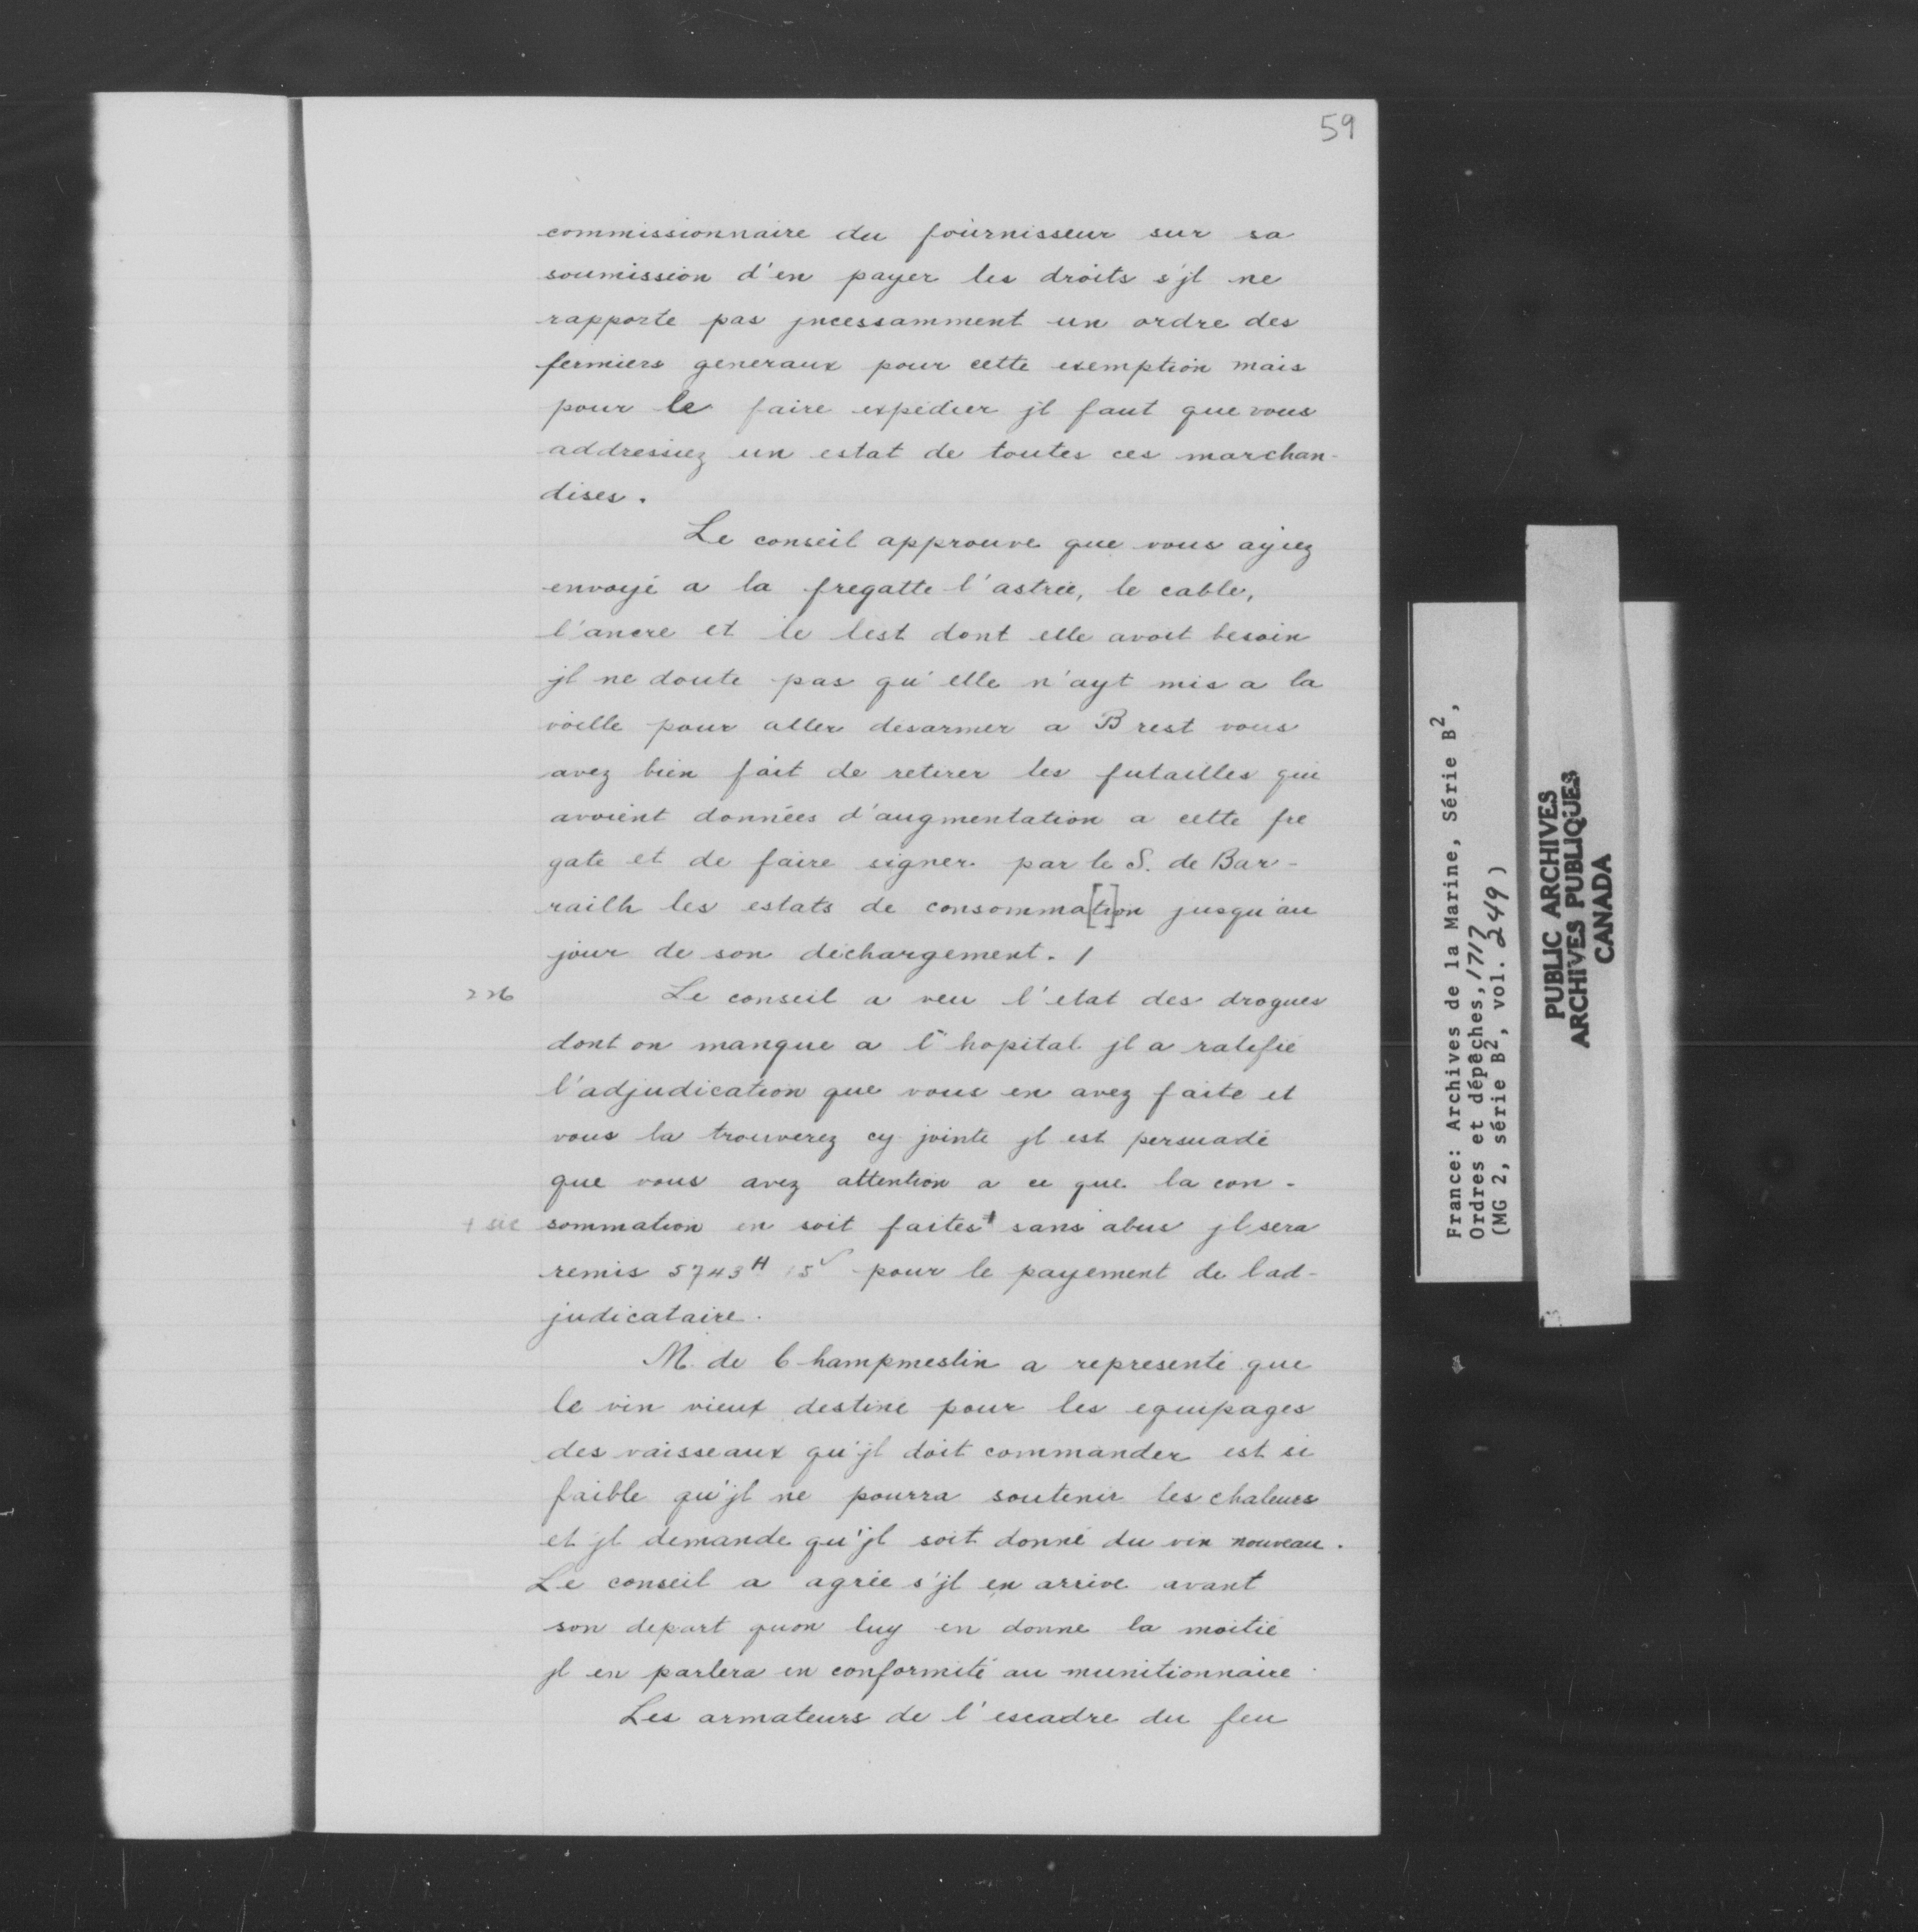 59
commissionnaire du fournisseur sur sa
soumission d'en payer les droits s'jl ne
rapporte pas jncessamment un ordre des
fermiers generaux pour cette exemption mais
pour le faire expedier jl faut que vous
addressiez un estat de toutes ces marchan-
dises.
Le conseil approuve que vous ayiez
envoyé a la fregatte l'astrée, le cable,
l'ancre et le lest dont elle avoit besoin
jl ne doute pas qu'elle n'ayt mis a la
voille pour aller desarmer a Brest vous
avez bien fait de retirer les futailles qui
avoient données d'augmentation a cette fre
gate et de faire signer par le S. de Bar-
railh les estats de consomma[ti]on jusqu'au
jour de son déchargement. /
226 Le conseil a veu l'etat des drogues
dont on manque a l'hopital jl a ratifié
l'adjudication que vous en avez faite et
vous la trouverez cy jointe jl est persuadé
que vous avez attention a ce que la con-
+ sic sommation en soit faites+ sans abus jl sera
remis 5743# 15s pour le payement de lad-
judicataire.
M. de Champmeslin a representé que
le vin vieux destiné pour les equipages
des vaisseaux qu'jl doit commander est si
faible qu'jl ne pourra soutenir les chaleurs
et jl demande qu'jl soit donné du vin nouveau.
Le conseil a agrée s'jl en arrive avant
son depart quon luy en donne la moitié
jl en parlera en conformité au munitionnaire.
Les armateurs de l'escadre du feu
France: Archives de la Marine, Série B2,
Ordres et dépêches, 1717
(MG 2, série B2, vol. 249)
PUBLIC ARCHIVES
ARCHIVES PUBLIQUES
CANADA